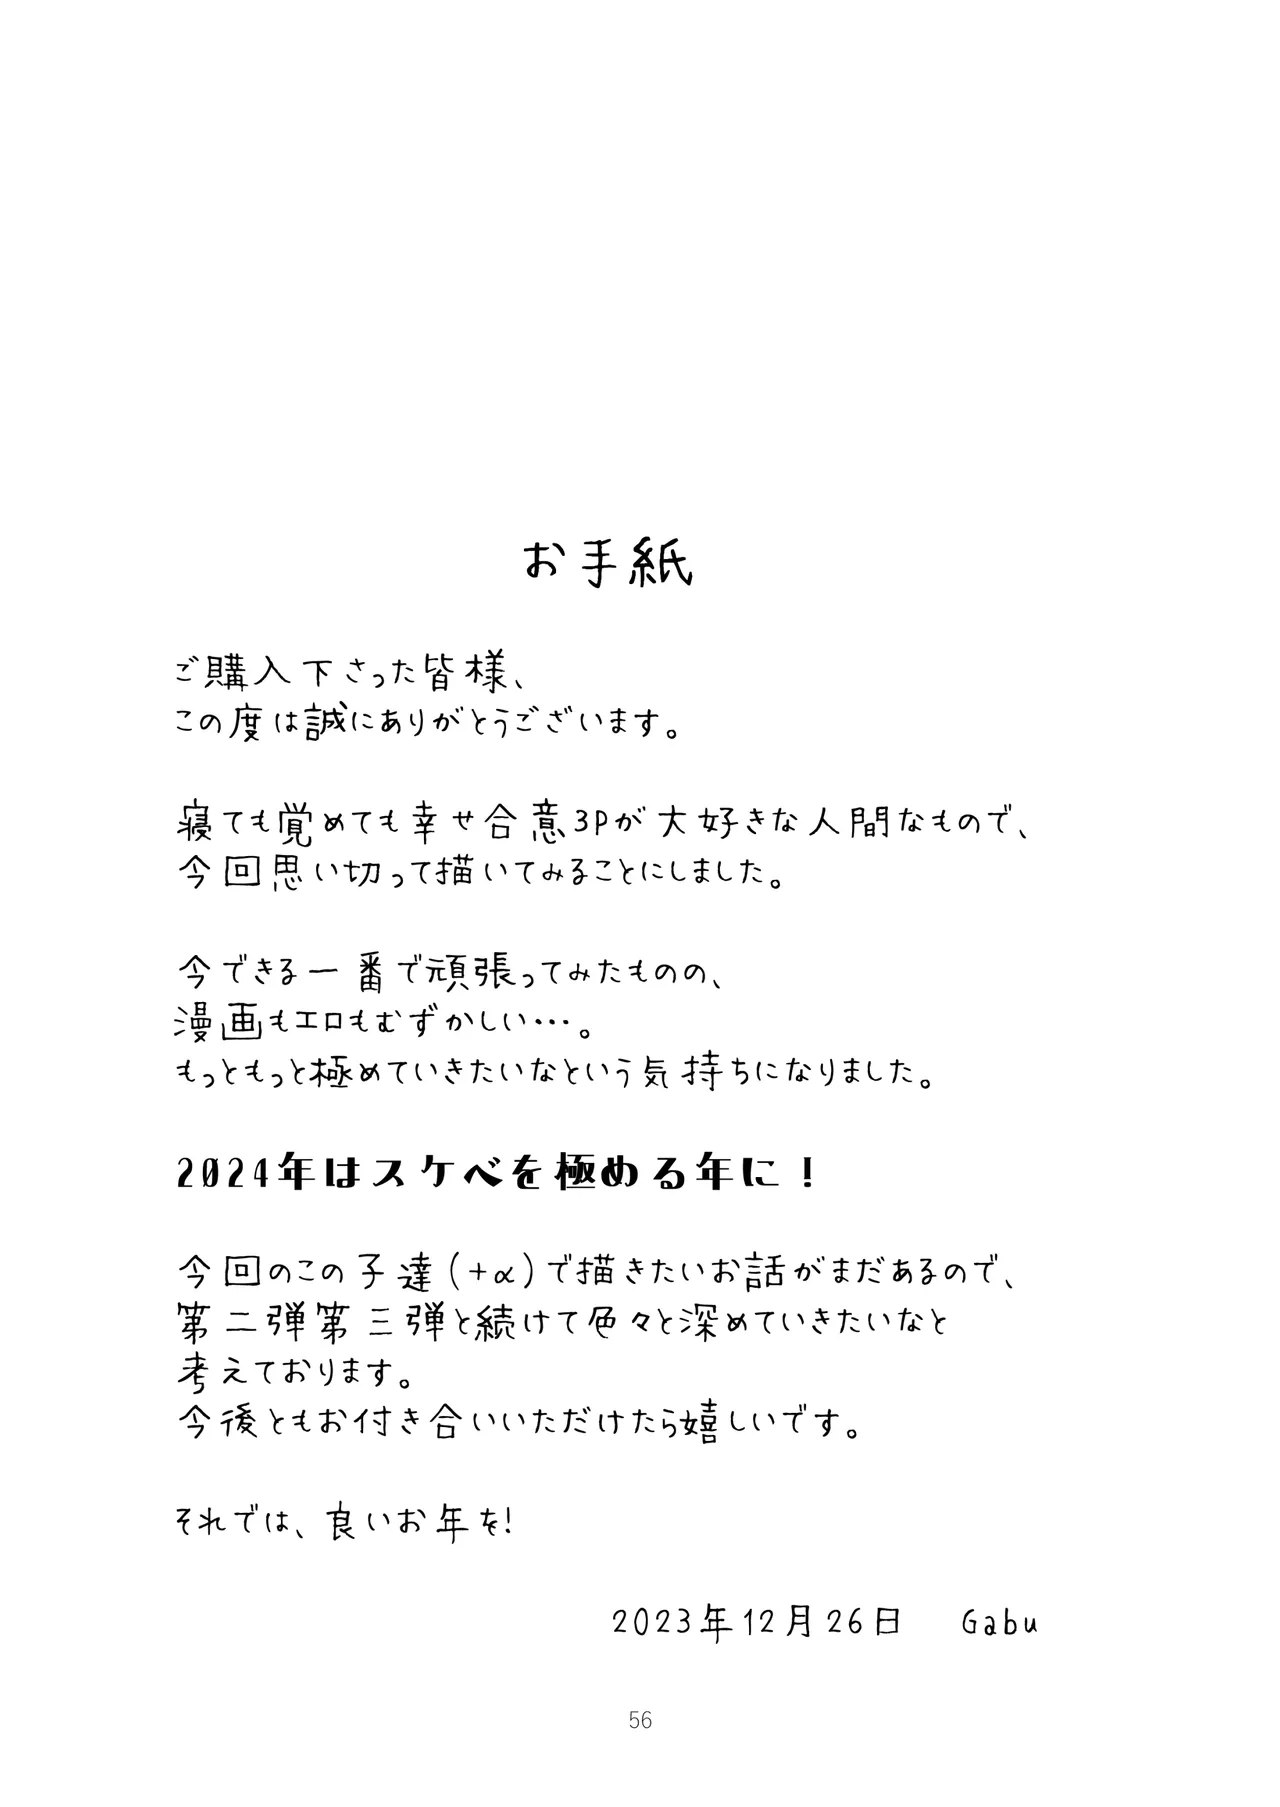 お手紙
ご購入下さった皆様、
この度は誠にありがとうございます。
寝ても覚めても幸せ合意3Pが大好きな人間なもので、
今回思い切って描いてみることにしました。
今できる一番で頑張ってみたものの、
漫画もエロもむずかしい…。
もっともっと極めていきたいなという気持ちになりました。
2024年はスケベを極める年に!
今回のこの子達(+α)で描きたいお話がまだあるので、
第二弾第三弾と続けて色々と深めていきたいなと
考えております。
今後ともお付き合いいただけたら嬉しいです。
それでは、良いお年を!
2023年12月26日 Gabu
56